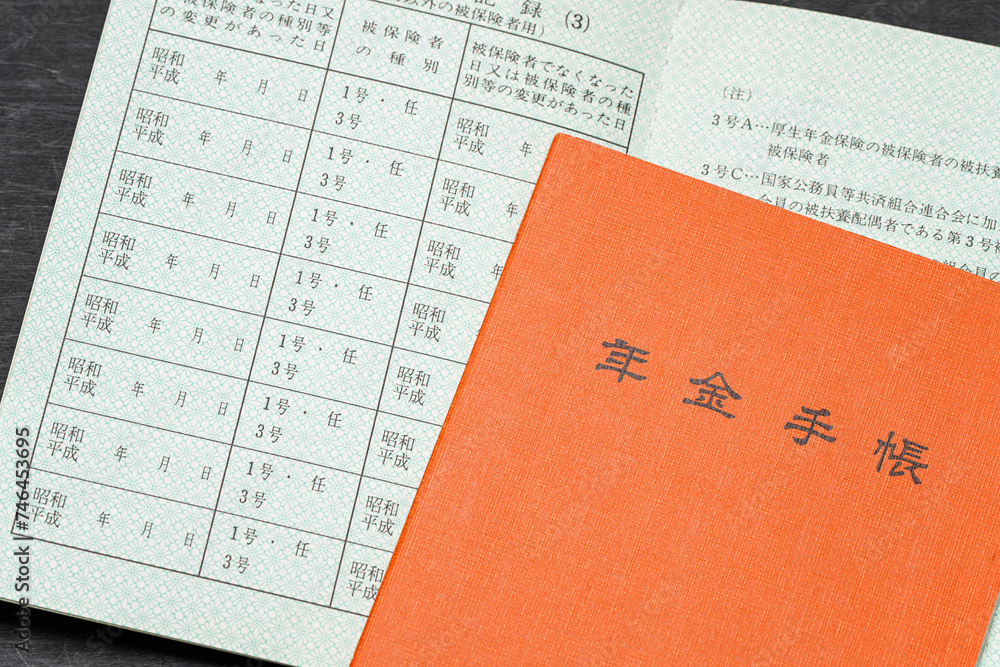 記録 (3)
以外の被保険者用)
なった日又
被保険者の種別等
の変更があった日
被保険者
の種別
被保険者でなくなった
日又は被保険者の種
別等の変更があった日
昭和
平成 年 月 日
1号・任
3号
昭和
平成 年
昭和
平成 年 月 日
1号・任
3号
昭和
平成 年
昭和
平成 年 月 日
1号・任
3号
昭和
平成 年
昭和
平成 年 月 日
1号・任
3号
昭和
平成
昭和
平成 年 月 日
1号・任
3号
昭和
平成
昭和
平成 年 月 日
1号・任
3号
昭和
平成
昭和
平成 年 月 日
1号・任
3号
昭和
平成
昭和
平成 年 月 日
1号・任
3号
昭和
平成
(注)
3号A…厚生年金保険の被保険者の被扶養
被保険者
3号C…国家公務員等共済組合連合会に加
会員の被扶養配偶者である第3号
組合員の
年金手帳
Adobe Stock | #746453695